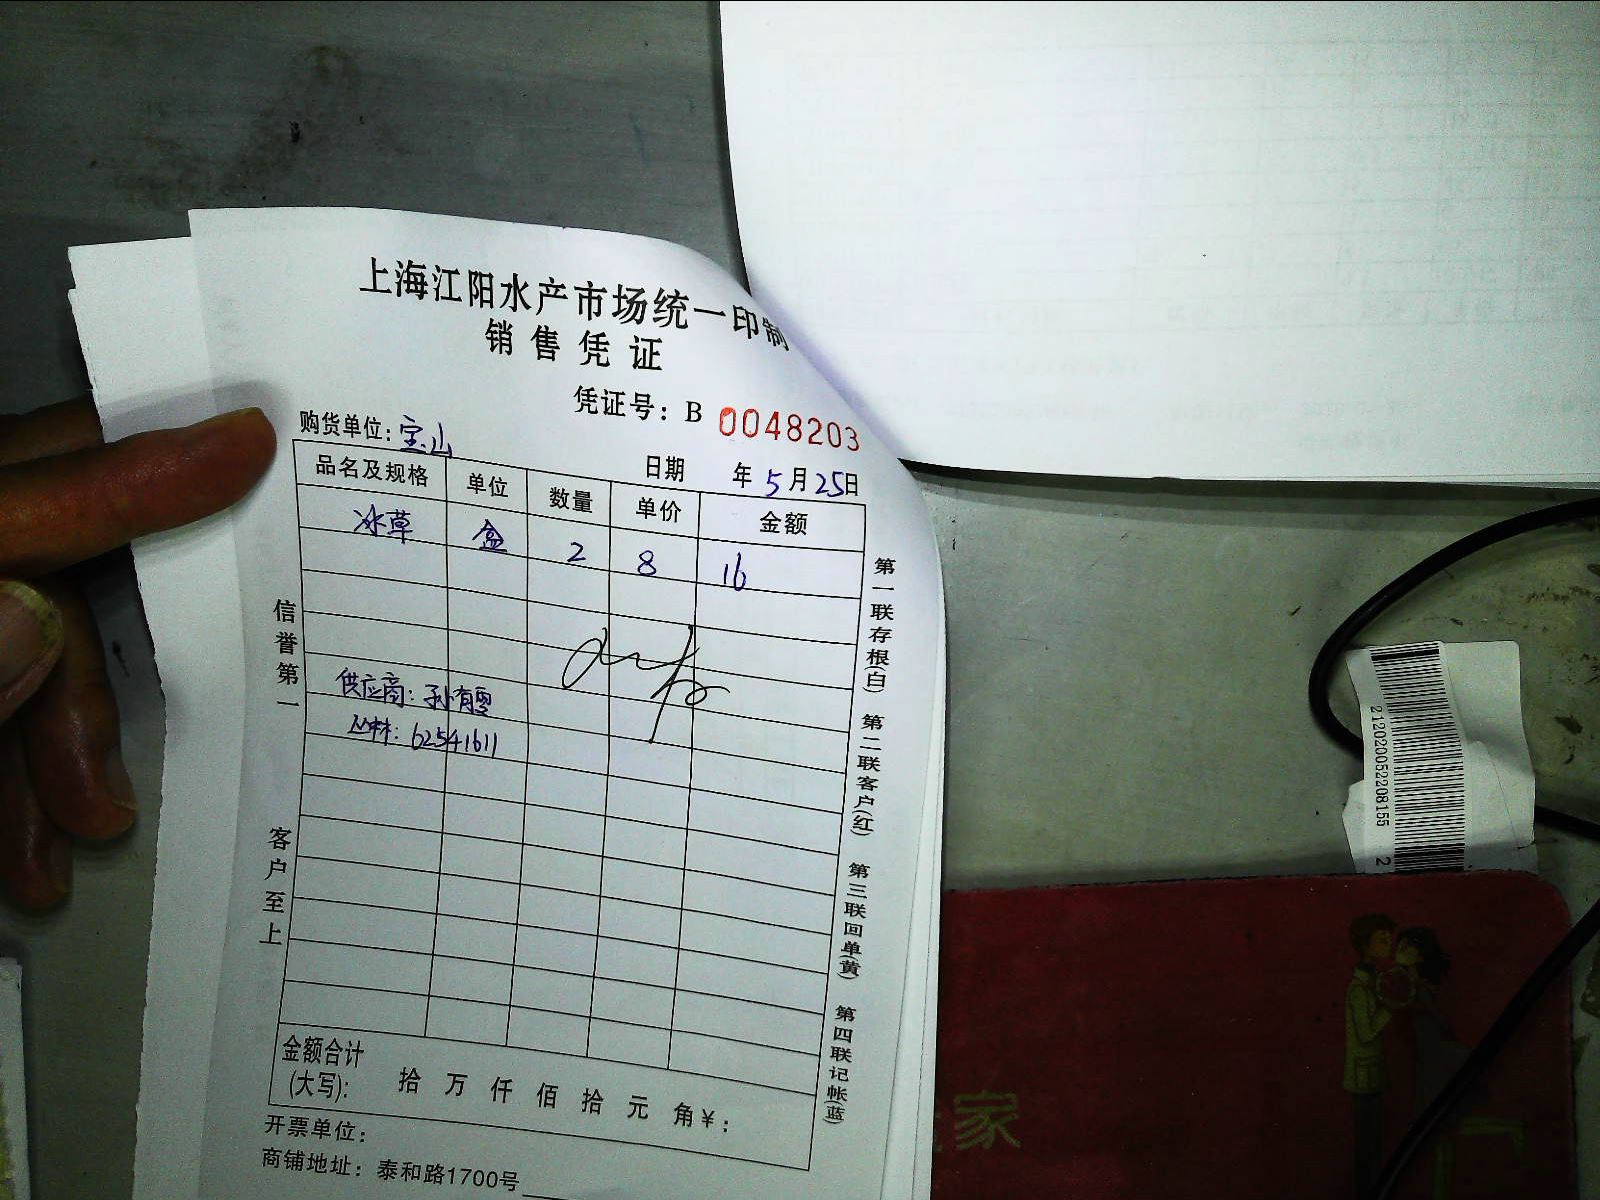 上海江阳水产市场统一印制
销售凭证
凭证号：B 0048203
购货单位：宝山
日期 年5月25日
品名及规格 单位 数量 单价 金额
冰草 盒 2 8 16
供应商：孙有雪
丛林：62541611
信誉第一
客户至上
第一联存根(白) 第二联客户(红) 第三联回单(黄) 第四联记帐(蓝)
金额合计
(大写)： 拾 万 仟 佰 拾 元 角¥：
开票单位：
商铺地址：泰和路1700号
2120200522208155
2
家